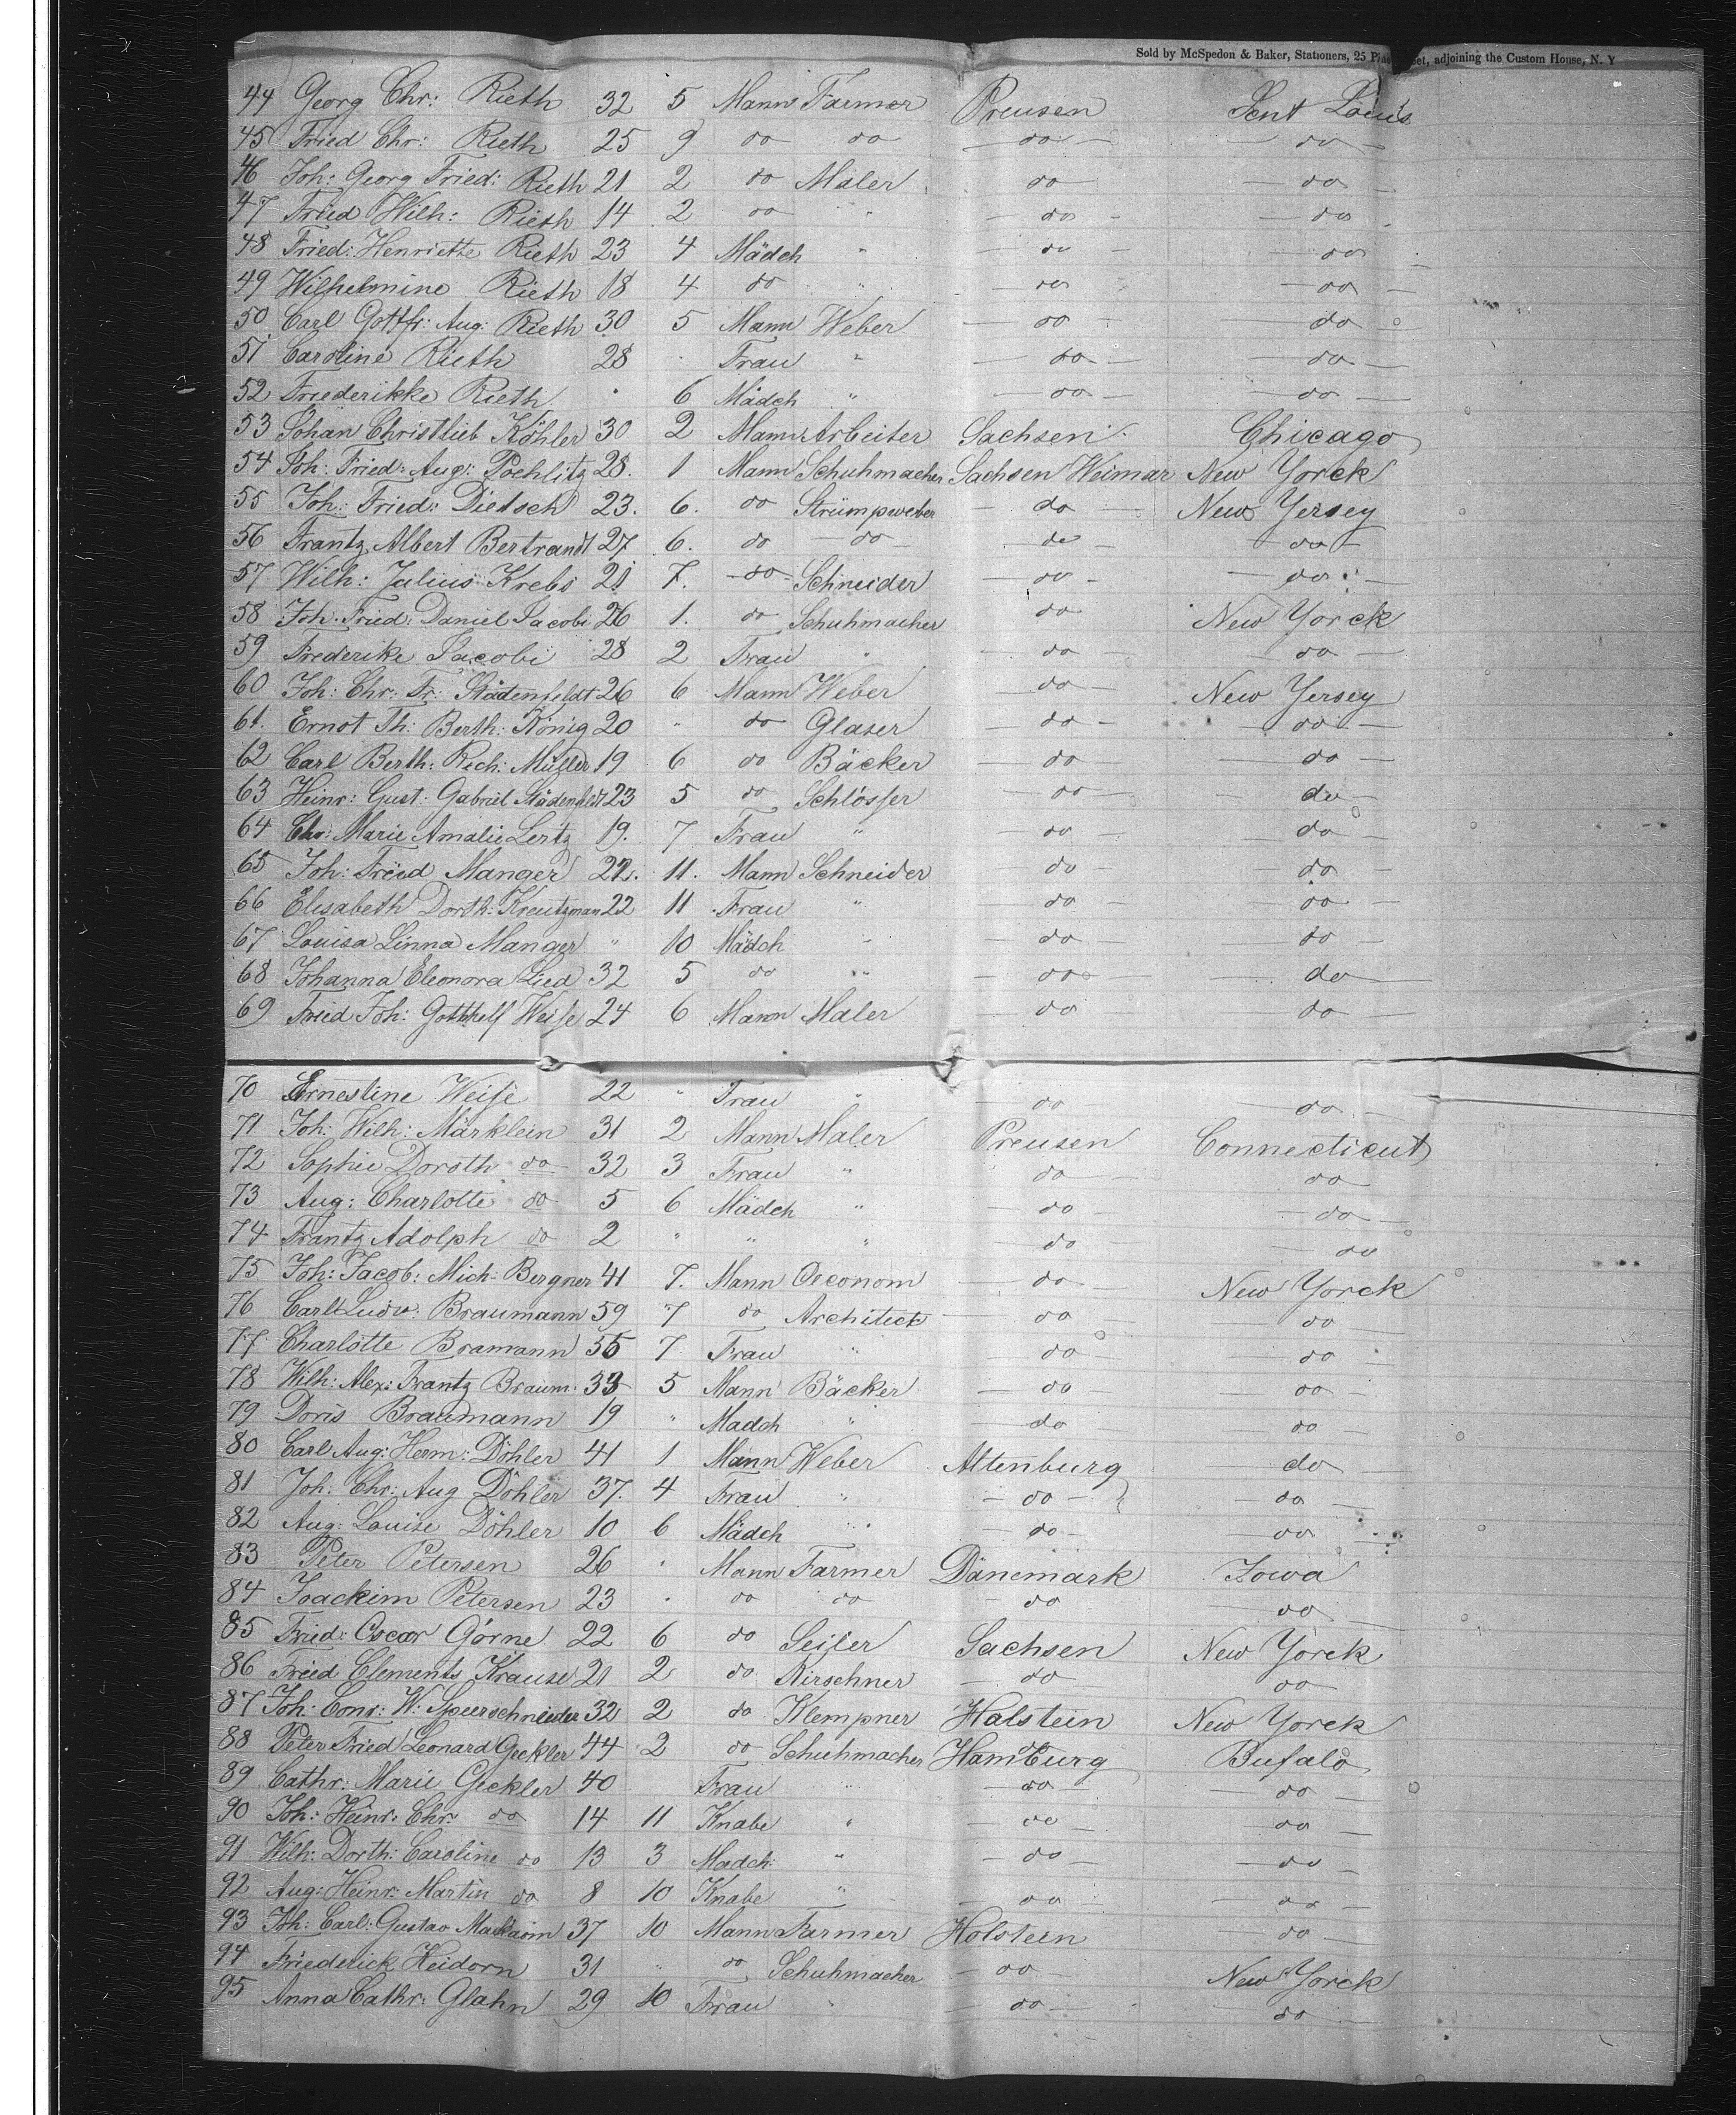 Sold by McSpedon & Baker, Stationers, 25 Pine Street, adjoining the Custom House, N. Y
44 Georg Chr: Rieth 32 5 Mann Farmer Preusen Sent Louis
45 Fried Chr: Rieth 25 9 do do do do
46 Joh: Georg Fried: Rieth 21 2 do Maler do do
47 Fried Wilh: Rieth 14 2 do " do do
48 Fried: Henriette Rieth 23 4 Mädch " do do
49 Wilhelmine Rieth 18 4 do " do do
50 Carl Gottfr: Aug: Rieth 30 5 Mann Weber do do
51 Caroline Rieth 28 " Frau " do do
52 Friederikke Rieth " 6 Mädch " do do
53 Johan Christlieb Köhler 30 2 Mann Arbeiter Sachsen Chicago
54 Joh: Fried: Aug: Pochlitz 28. 1 Mann Schuhmacher Sachsen Weimar New Yorck
55 Joh: Fried: Dietsch 23. 6. do Strümpweber do New Yersey
56 Frantz Albert Bertrandt 27 6. do do do do
57 Wilh: Julius Krebs 21 7. do Schneider do do
58 Joh: Fried: Daniel Jacobi 26 1. do Schuhmacher do New Yorck
59 Frederike Jacobi 28 2 Frau " do do
60 Joh: Chr: Fr: Städenfeldt 26 6 Mann Weber do New Yersey
61. Ernst Th: Berth: König 20 " do Glaser do do
62 Carl Berth: Rich: Müller 19 6 do Bäcker do do
63 Heinr: Gust: Gabriel Städenfeldt 23 5 do Schlosser do do
64 Chr: Marie Amalie Lertz 19. 7 Frau " do do
65 Joh: Fried Manger 22. 11. Mann Schneider do do
66 Elisabeth Dorth: Kreutzman 22 11 Frau " do do
67 Louisa Linna Manger " 10 Mädch " do do
68 Johanna Eleonora Lied 32 5 do " do do
69 Fried Joh: Gotthelf Weise 24 6 Mann Maler do do
70 Ernestine Weise 22 " Frau " do do
71 Joh: Wilh: Märklein 31 2 Mann Maler Preusen Connecticut
72 Sophie Doroth do 32 3 Frau " do do
73 Aug: Charlotte do 5 6 Mädch " do do
74 Frantz Adolph do 2 " " " do do
75 Joh: Jacob: Mich: Bergner 41 7. Mann Oeconom do New Yorck
76 Carl Ludw: Braumann 59 7 do Architect do do
77 Charlotte Bramann 55 7 Frau " do do
78 Wilh: Alex: Frantz Braum. 33 5 Mann Bäcker do do
79 Doris Braumann 19 " Madch " do do
80 Carl Aug: Herm: Döhler 41 1 Mann Weber Altenburg do
81 Joh: Chr: Aug Döhler 37. 4 Frau " do do
82 Aug: Louise Döhler 10 6 Mädch " do do
83 Peter Petersen 26 " Mann Farmer Dänemark Iowa
84 Joackim Petersen 23 " do do do do
85 Fried: Oscar Görne 22 6 do Seiler Sachsen New Yorck
86 Fried Clements Krause 21 2 do Kirschner do do
87 Joh: Conr: W: Speerschneider 32 2 do Klempner Holstein New Yorck
88 Peter Fried Leonard Geckler 44 2 do Schuhmacher Hamburg Bufalo
89 Cathr: Marie Geckler 40 Frau " do do
90 Joh: Heinr: Chr: do 14 11 Knabe " do do
91 Wilh: Dorth: Caroline do 13 3 Madch: " do do
92 Aug: Heinr: Martin do 8 10 Knabe " do do
93 Joh: Carl: Gustav 37 10 Mann Farmer Holstein do
94 Friederick Heidorn 31 " do Schuhmacher do New Yorck
95 Anna Cathr: Glahn 29 10 Frau " do do